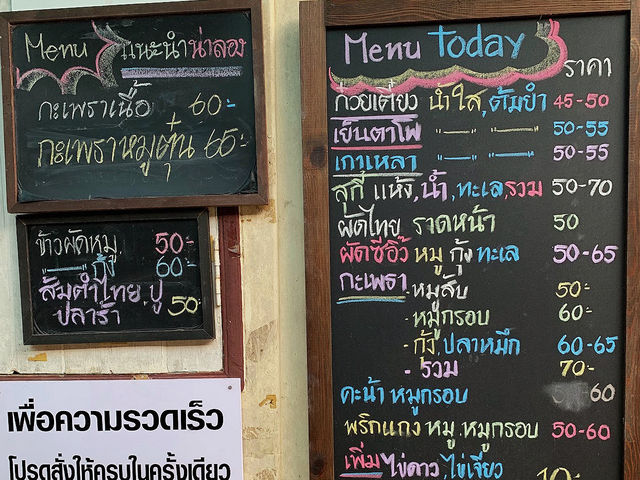 Menu แนะนำน่าลอง
กะเพราเนื้อ 60.-
กะเพราหมูตุ๋น 65.-
ข้าวผัดหมู 50.-
"——" กุ้ง 60.-
ส้มตำไทย.ปู
ปลาร้า 50.-
เพื่อความรวดเร็ว
โปรดสั่งให้ครบในครั้งเดียว
Menu Today
ราคา
ก๋วยเตี๋ยว น้ำใส,ต้มยำ 45-50
เย็นตาโฟ "——" "——" 50-55
เกาเหลา "——" "——" 50-55
สุกี้ แห้ง,น้ำ,ทะเล,รวม 50-70
ผัดไทย ราดหน้า 50
ผัดซีอิ๊ว หมู กุ้ง ทะเล 50-65
กะเพรา.หมูสับ 50.-
-หมูกรอบ 60.-
-กุ้ง,ปลาหมึก 60-65
-รวม 70.-
คะน้า หมูกรอบ 60
พริกแกง หมู,หมูกรอบ 50-60
เพิ่ม ไข่ดาว,ไข่เจียว 10.-